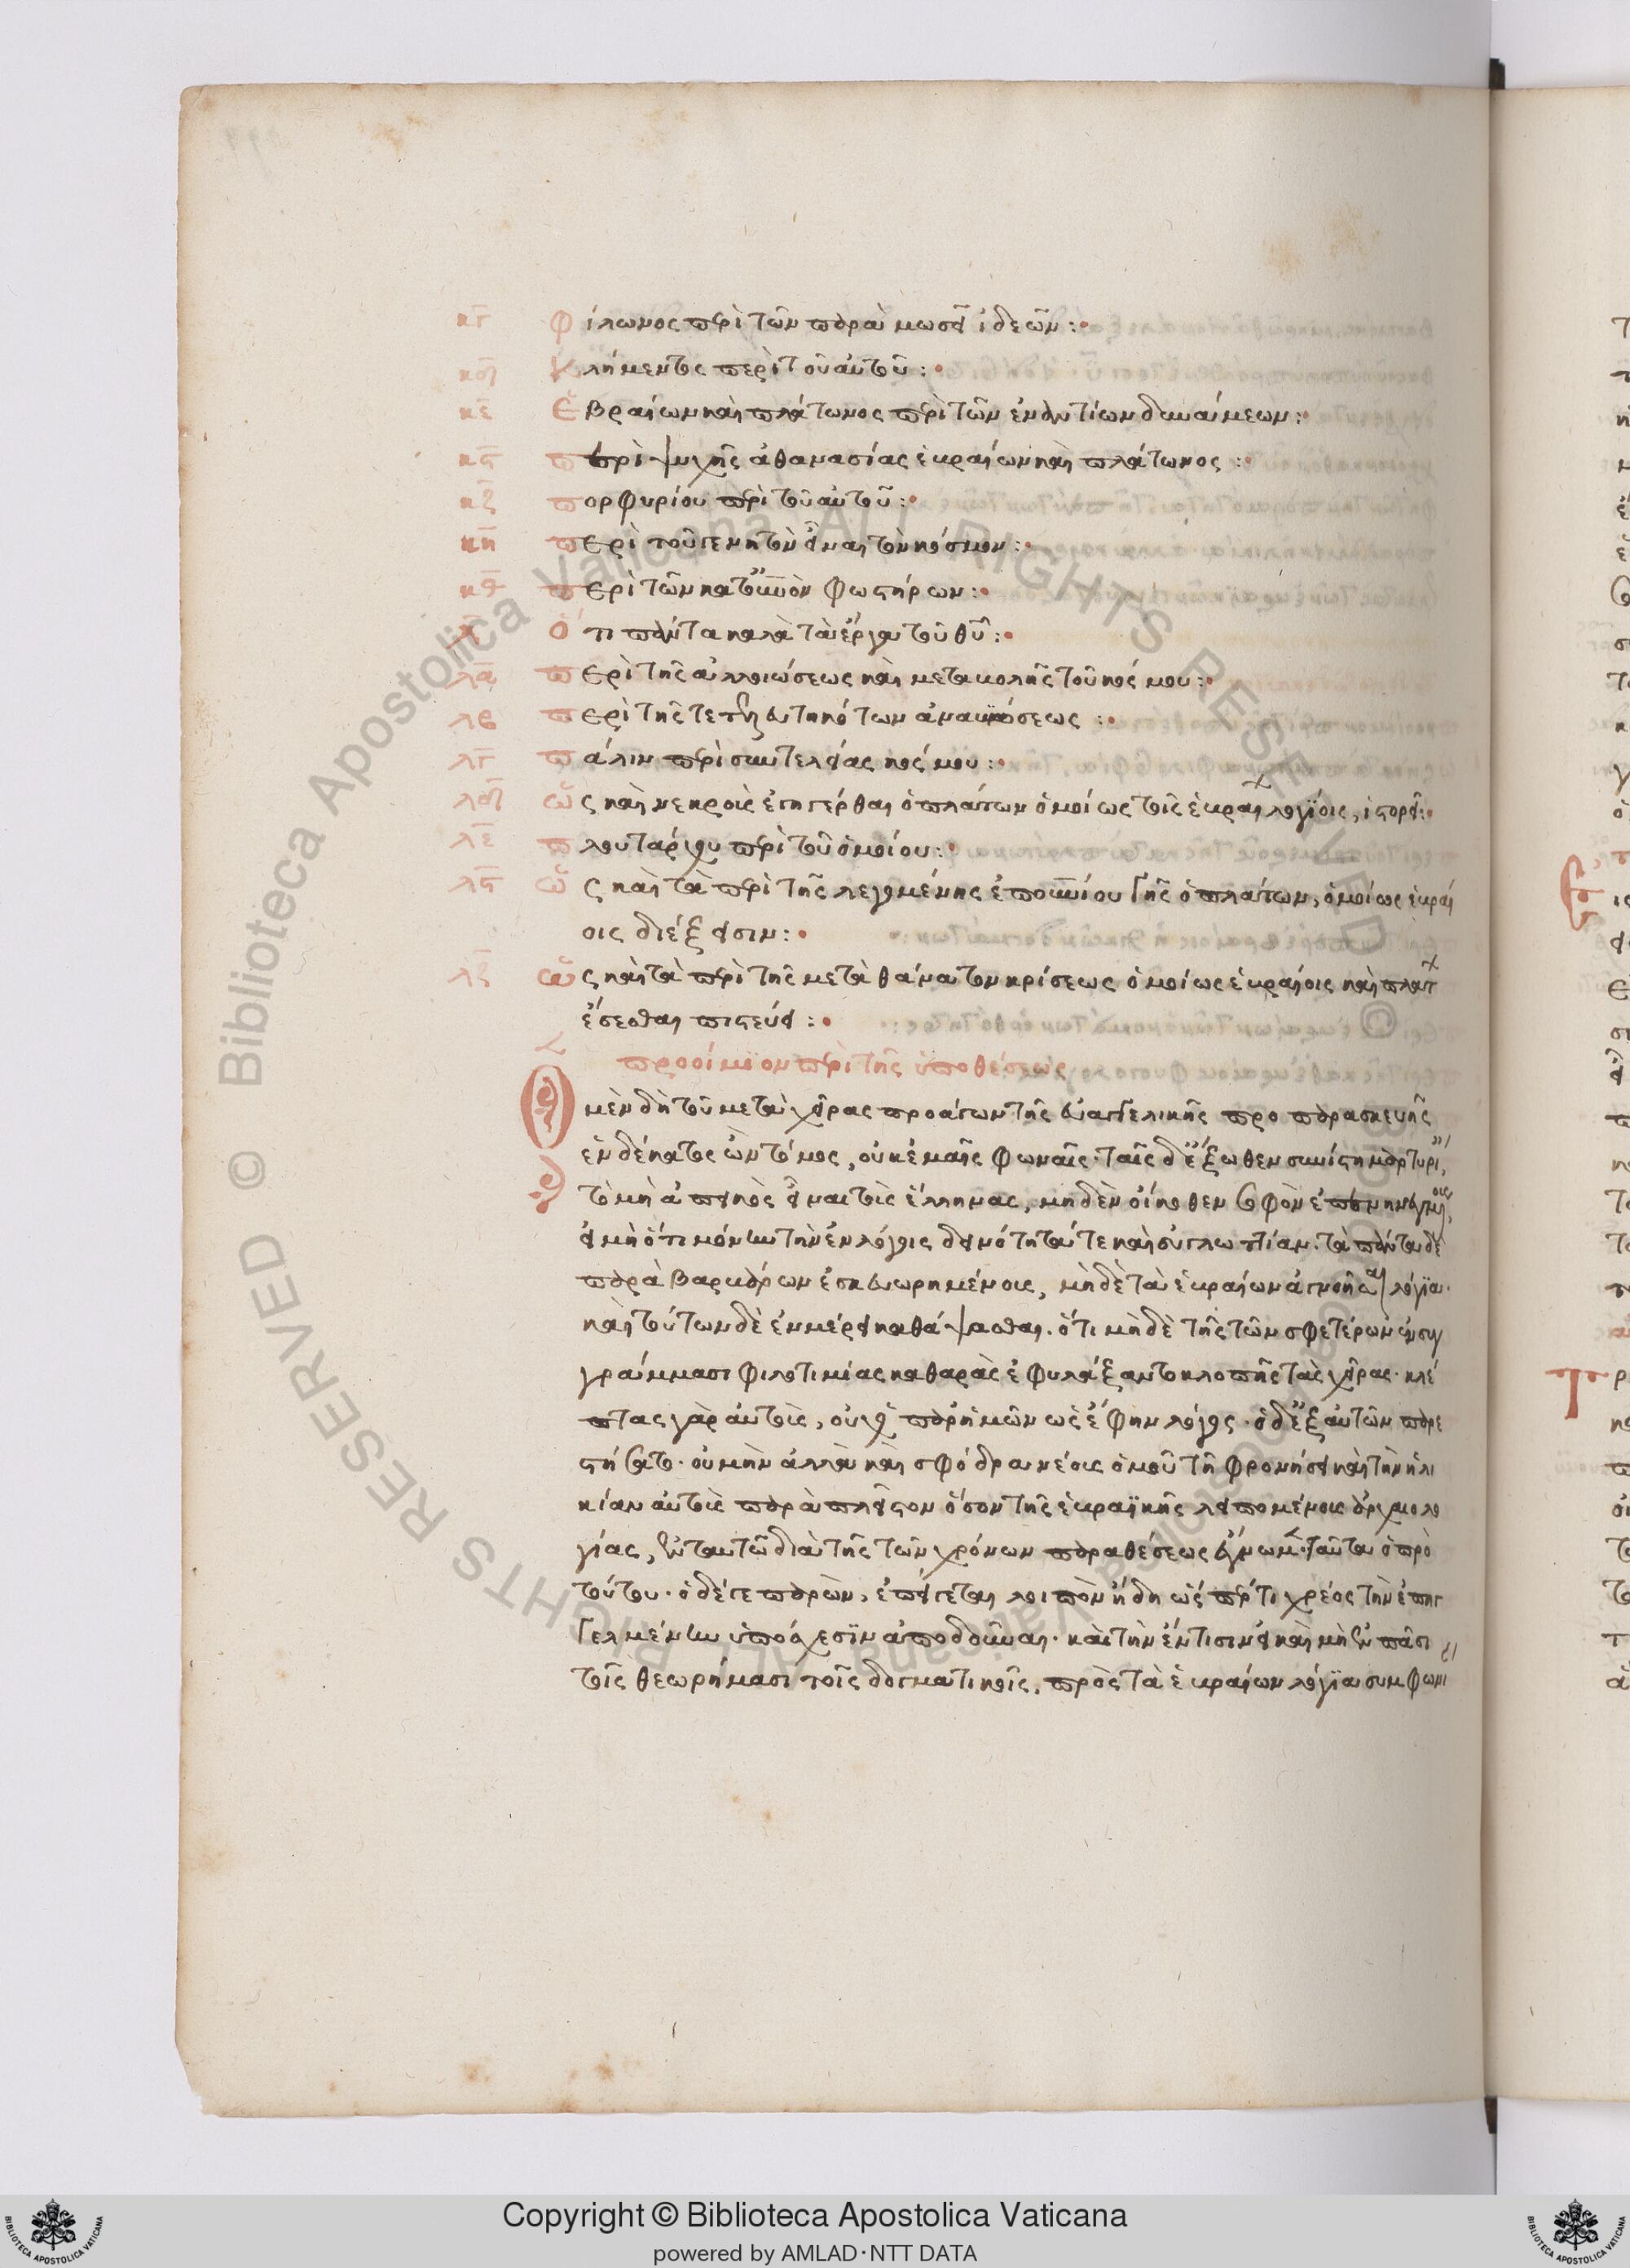 κγ Φίλωνος περὶ τῶν παρὰ μωσεῖ ἰδεῶν :
κδ Κλήμεντος περὶ τοῦ αὐτοῦ :
κε Ἑβραίων καὶ πλάτωνος περὶ τῶν ἐναντίων δυνάμεων :
κς Περὶ ψυχῆς ἀθανασίας ἑβραίων καὶ πλάτωνος :
κζ Πορφυρίου περὶ τοῦ αὐτοῦ :
κη Περὶ τοῦ γενητὸν εἶναι τὸν κόσμον :
κθ Περὶ τῶν κατ' οὐνὸν φωστήρων :
λ Ὅτι πάντα καλὰ τὰ ἔργα τοῦ θυ :
λα Περὶ τῆς ἀλλοιώσεως καὶ μεταβολῆς τοῦ κόσμου :
λβ Περὶ τῆς τετελευτηκότων ἀναβιώσεως :
λγ Πάλιν περὶ συντελείας κόσμου :
λδ Ὡς καὶ νεκροὺς ἐγηγέρθαι ὁ πλάτων ὁμοίως τοῖς ἑβραίων λογίοις, ἱστορεῖ :
λε Πλουτάρχου περὶ τοῦ ὁμοίου :
λς Ὡς καὶ τὰ περὶ τῆς λεγομένης ἐπουνίου γῆς ὁ πλάτων, ὁμοίως ἑβραί
οις διέξεισιν :
λζ Ὡς καὶ τὰ περὶ τῆς μετὰ θάνατον κρίσεως ὁμοίως ἑβραίοις καὶ πλάτ
ἔσεσθαι πιστεύει :
προοίμιον περὶ τῆς ὑποθέσεως
Ὁ μὲν δὴ τοῦ μετὰ χεῖρας προάγων τῆς εὐαγγελικῆς προπαρασκευῆς
ἐνδέκατος ὢν τόμος, οὐκ ἐμαῖς φωναῖς· ταῖς δ' ἔξωθεν συνίστη μαρτυρί
τὸ μὴ ἀπεικὸς εἶναι τοὺς ἕλληνας, μηδὲν οἴκοθεν σοφὸν ἐπενηνεγμένοις
εἰ μὴ ὅτι μόνην τὴν ἐν λόγοις δεινότητά τε καὶ εὐγλωττίαν. τὰ πάντα δὲ
παρὰ βαρβάρων ἐσκευωρημένοις, μηδὲ τὰ ἑβραίων ἀγνοῆσαι λόγια·
καὶ τούτων δὲ ἐν μέρει καθάψασθαι. ὅτι μὴ δὲ τῆς τῶν σφετέρων ἐν συγ
γράμμασι φιλοτιμίας καθαρὰς ἐφυλάξαντο κλοπῆς τὰς χεῖρας· κλέ
πτας γὰρ αὐτοὺς, οὐχ ὁ παρ' ἡμῶν ὡς ἔφην λόγος· ὁ δ' ἐξ αὐτῶν παρε
στήσατο· οὐ μὴν ἀλλὰ καὶ σφόδρα νέους ὁμοῦ τῇ φρονήσει καὶ τὴν ἡλι
κίαν αὐτοὺς παρὰ πλεῖστον ὅσον τῆς ἑβραϊκῆς λειπομένους ἀρχαιολο
γίας, ἐν ταυτῶ διὰ τῆς τῶν χρόνων παραθέσεως ἔγνωμεν· ταῦτα ὁ πρὸ
τούτου· ὁ δέ γε παρὼν, ἐπείγεται λοιπὸν ἤδη ὥσπέρ τι χρέος τὴν ἐπηγ
γελμένην ὑπόσχεσιν ἀποδοῦναι· καὶ τὴν ἔν τισιν εἰ καὶ μὴ ἐν πᾶσι
τοῖς θεωρήμασι τοῖς δογματικοῖς, πρὸς τὰ ἑβραίων λόγια συμφωνί
Copyright © Biblioteca Apostolica Vaticana
powered by AMLAD·NTT DATA